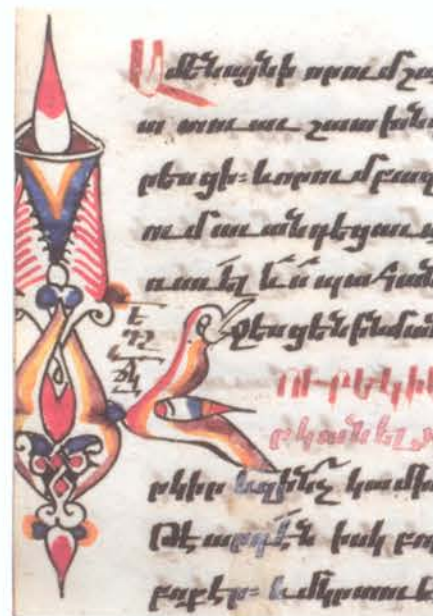 Ամենայնի որում շա
տ տուաւ շատ խնդ
րեսցի։ և որում բազ
ում աւանդեցաւ ա
ռաւել ևս պահան
ջեսցեն ի նման
րկանել
րկիր եզինչ կամի
Թէ արդէն իսկ բոր
բոքէր։ և մկրտու